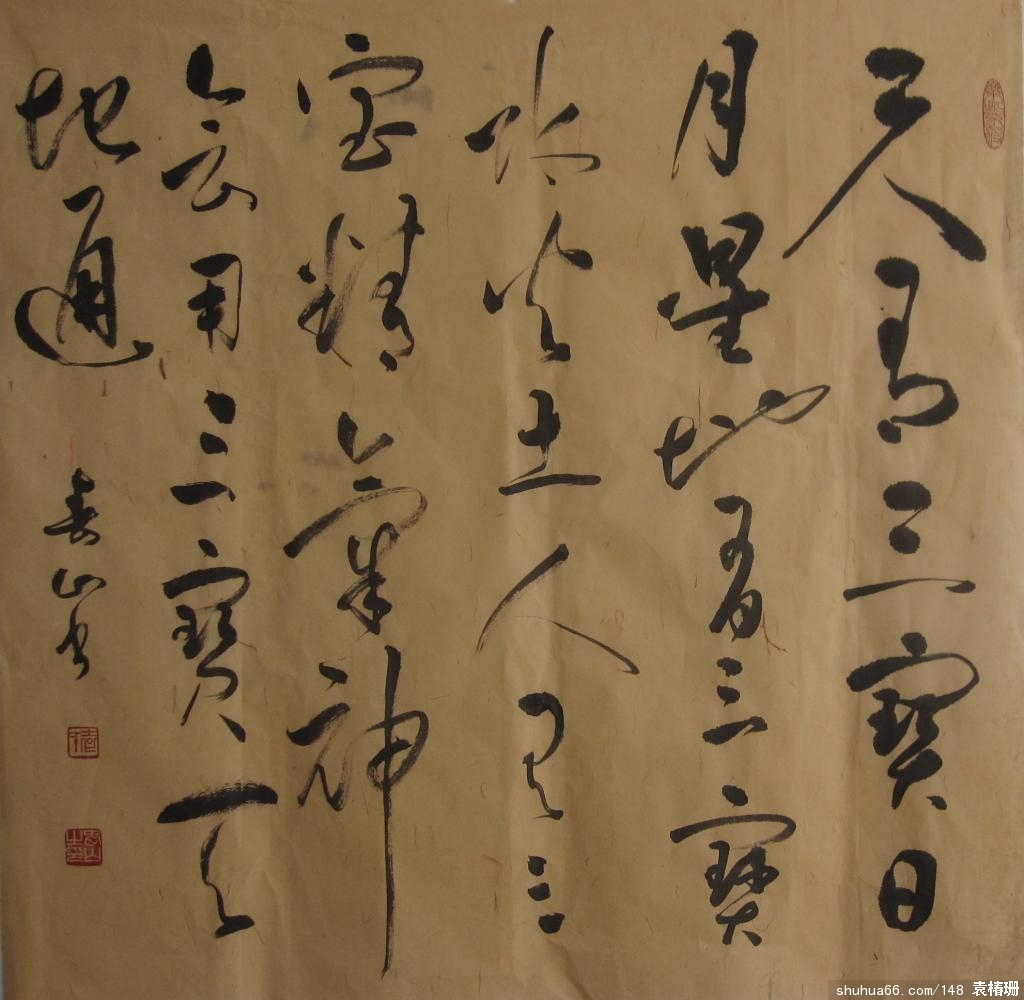 天有三寶日
月星地有三寶
水火土人有三
宝精氣神
会用三寶天
地通
春山书
shuhua66.com/148 袁椿珊